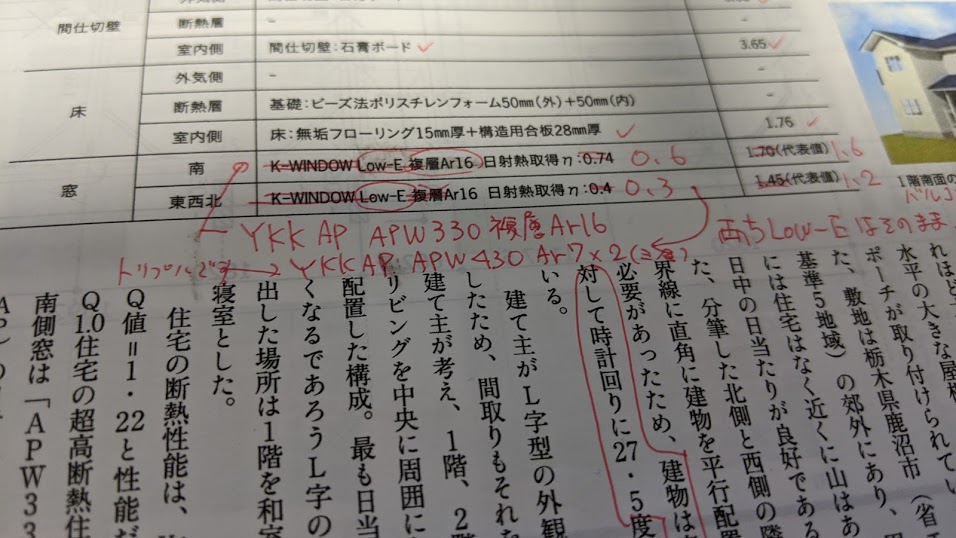 間仕切壁
断熱層 -
室内側 間仕切壁：石膏ボード 3.65
床
外気側 - -
断熱層 基礎：ビーズ法ポリスチレンフォーム50mm（外）＋50mm（内）
室内側 床：無垢フローリング15mm厚＋構造用合板28mm厚 1.76
窓
南 K-WINDOW Low-E 複層Ar16 日射熱取得η：0.74 0.6 1.70（代表値） 1.6
東西北 K-WINDOW Low-E 複層Ar16 日射熱取得η：0.4 0.3 1.45（代表値） 1.2
1階南面の
YKK AP APW330 複層Ar16
両方Low-Eはそのまま
トリプルです YKK AP APW430 Ar7×2
れほど
水平の大きな屋根
ポーチが取り付けられて
た、敷地は栃木県鹿沼市（省エ
基準5地域）の郊外にあり、
には住宅はなく近くに山はあ
日中の日当たりが良好である
た、分筆した北側と西側の隣
界線に直角に建物を平行配置
必要があったため、建物は
対して時計回りに27・5度
いる。
建て主がL字型の外観
したため、間取りもそれ
建て主が考え、1階、2
リビングを中央に周囲に
配置した構成。最も日当
くなるであろうL字の
出した場所は1階を和室
寝室とした。
住宅の断熱性能は、
Q値＝1・22と性能
Q1.0住宅の超高断熱住
南側窓は「APW33